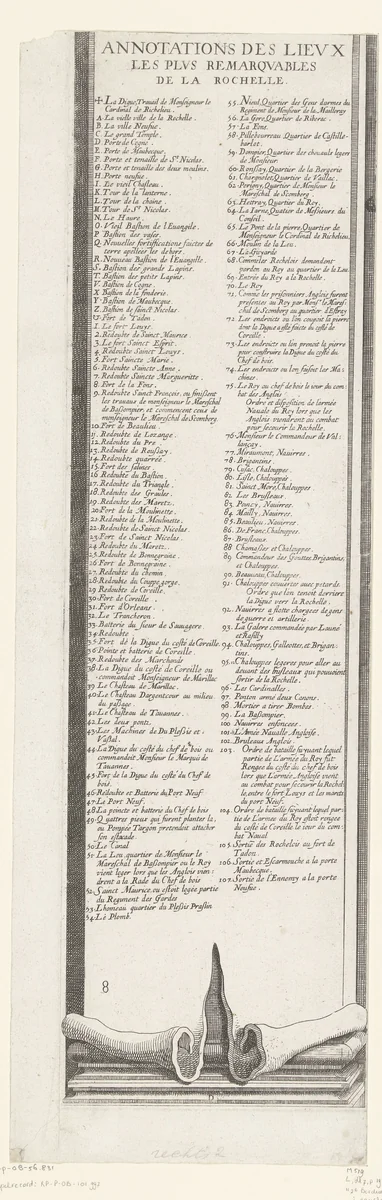 ANNOTATIONS DES LIEVX
LES PLVS REMARQVABLES
DE LA ROCHELLE.
La Digue, Travail de Monseigneur le
Cardinal de Richelieu.
A. La vieille ville de la Rochelle.
B. La ville Neufue.
C. Le grand Temple.
D. Porte de Cogne.
E. Porte de Maubecque.
F. Porte et tenaille de St. Nicolas.
G. Porte et tenaille des deux moulins.
H. Porte neufue.
I. Le vieil Chasteau.
K. Tour de la lanterne.
L. Tour de la chaine.
M. Tour de St. Nicolas.
N. Le Havre.
O. Vieil Bastion de l'Euangile.
P. Bastion des vases.
Q. Nouvelles fortifications faictes de
terre apellees les dehors.
R. Nouveau Bastion de l'Euangille.
S. Bastion des grands Lapins.
T. Bastion des petits Lapins.
V. Bastion de Cogne.
X. Bastion de la fonderie.
Y. Bastion de Maubecque.
Z. Bastion de sainct Nicolas.
Fort de Tadon.
1. Le fort Louys.
2. Redoubte de Sainct Maurice.
3. Le fort Sainct Esprit.
4. Redoubte Sainct Louys.
5. Fort Saincte Marie.
6. Redoubte Saincte Anne.
7. Redoubte Saincte Margueritte.
8. Fort de la Fons.
9. Redoubte Sainct François, ou finissent
les travaux de monseigneur le Mareschal
de Bassompier, et commencent ceux de
monseigneur le Mareschal de Schomberg.
10. Fort de Beaulieu.
11. Redoubte de Lozange.
12. Redoubte du Pre.
13. Redoubte de Ronssay.
14. Redoubte quarree.
15. Fort des salines.
16. Redoubte du Bastion.
17. Redoubte du Triangle.
18. Redoubte des Graules.
19. Redoubte des Maretz.
20. Fort de la Moulinette.
21. Redoubte de la Moulinette.
22. Redoubte de Sainct Nicolas.
23. Fort de Sainct Nicolas.
24. Redoubte du Maretz.
25. Redoubte de Bonnegraine.
26. Fort de Bonnegraine.
27. Redoubte du chemin.
28. Redoubte du Couppe gorge.
29. Redoubte de Coreille.
30. Fort de Coreille.
31. Fort d'Orleans.
32. Le Trancheron.
33. Batterie du sieur de Sauuegere.
34. Redoubte.
35. Fort de la Digue du costé de Coreille.
36. Pointe et batterie de Coreille
37. Redoubte des Marchands
38. La Digue du costé de Coreille ou
commandoit Monseigneur de Marillac
39. Le Chasteau de Marillac.
40. Le Chasteau Dargencour au milieu
du passage.
41. Le Chasteau de Touannes.
42. Les deux ponts.
43. Les Machines de Du Plessis et
44. La Digue du costé du chef de bois ou
commandoit Monsieur le Marquis de
Touannes.
45. Fort de la Digue du costé du Chef de
bois.
46. Redoubte et Batterie du Port Neuf
47. Le Port Neuf.
48. La poincte et batterie du Chef de bois
49. Quattres pieux qui furent plantez la,
ou Pompee Targon pretendoit attacher
son estacade.
50. Le Canal
51. La Lou quartier de Monsieur le
Mareschal de Bassompier ou le Roy
vient loger lors que les Anglois vin-
drent a la Rade du Chef de bois
52. Sainct Maurice, ou estoit logée partie
du Regiment des Gardes
53. Lhomeau quartier du Plessis Praslin
54. Le Plomb.
55. Nieul, Quartier des Gens darmes du
Regiment de Monsieur de la Meilleray
56. La Gere, Quartier de Riberac.
57. La Fons.
58. Pillebourreau Quartier de Castille-
barlot.
59. Dompier, Quartier des cheuaulx legers
de Monsieur.
60. Ronssay, Quartier de la Bergerie
61. Chargnolet, Quartier de Vaillac.
62. Perigny, Quartier de Monsieur le
Mareschal de Schomberg.
63. Hettray, Quartier du Roy.
64. La Iarne, Quatier de Messieurs du
Conseil.
65. La Pont de la pierre, Quartier de
Monseigneur le Cardinal de Richelieu.
66. Moulin de la Lou.
67. La Guyarde
68. Commēt les Rochelois demandent
pardon au Roy au quartier de la Lou.
69. Entrée du Roy a la Rochelle.
70. Le Roy
71. Comme les prisonniers Anglois furent
presentes au Roy par Monsr. le Mares-
chal de Schomberg au quartier d'Estray
72. Les endroicts ou l'on coupoit la pierre
dont la Digue a esté faicte du costé de
Coreille.
73. Les endroicts ou l'on prenoit la pierre
pour construire la Digue du costé du
Chef de bois.
74. Les endroicts ou l'on faisoit les Ma-
chines
75. Le Roy au chef de bois le iour du com-
bat des Anglois.
Ordre et disposition de l'armée
Nauale du Roy lors que les
Anglois viendrent au combat
pour secourir la Rochelle.
76. Monsieur le Commandeur de Val-
lancay.
77. Miraumont, Nauires.
78. Brigantins.
79. Cusac, Chalouppes.
80. Lisle, Chalouppes
81. Sainct More, Chalouppes
82. Les Brusleaux
83. Poincy, Nauires.
84. Mailly, Nauires.
85. Beaulieu, Nauieres.
86. De Franc, Chaloupes.
87. Brusleaux
88. Chamasles et Chalouppes.
89. Commandeur des Gouttes, Brigantins,
et Chaloupes.
90. Beaumieu, Chaloupes.
91. Chalouppes couuertes avec petards.
Ordre que l'on tenoit derriere
la Digue vers la Rochelle.
92. Nauires a flotte chargees de gens
de guerre et artillerie.
93. La Galere commandée par Launé
et Rasilly
94. Chalouppes, Galiottes, et Brigan-
tins.
95. Chalouppes legeres pour aller au
deuant des brusleaux que pouuoient
sortir de la Rochelle.
96. Les Cardinalles.
97. Ponton armé deux Canons.
98. Mortier a tirer Bombes.
99. La Bassompier.
100. Nauires enfoncées.
101. L'Armée Nauale Angloise.
102. Bruleaux Anglois.
103. Ordre de bataille suyuant lequel
partie de L'armée du Roy fut
Rengée du costé du chef de bois
lors que L'armée Angloise vient
au combat pour secourir la Rochel-
le, entre le fort Louys et les marets
du port Neuf.
104. Ordre de bataille suyuant lequel par-
tie de L'armée du Roy estoit rengée
du costé de Coreille le iour du com-
bat Naual
105. Sortie des Rochelois au fort de
Tadon.
106. Sortie et Escarmouche a la porte
Maubecque.
107. Sortie de l'Ennemy a la porte
Neufue.
8
D